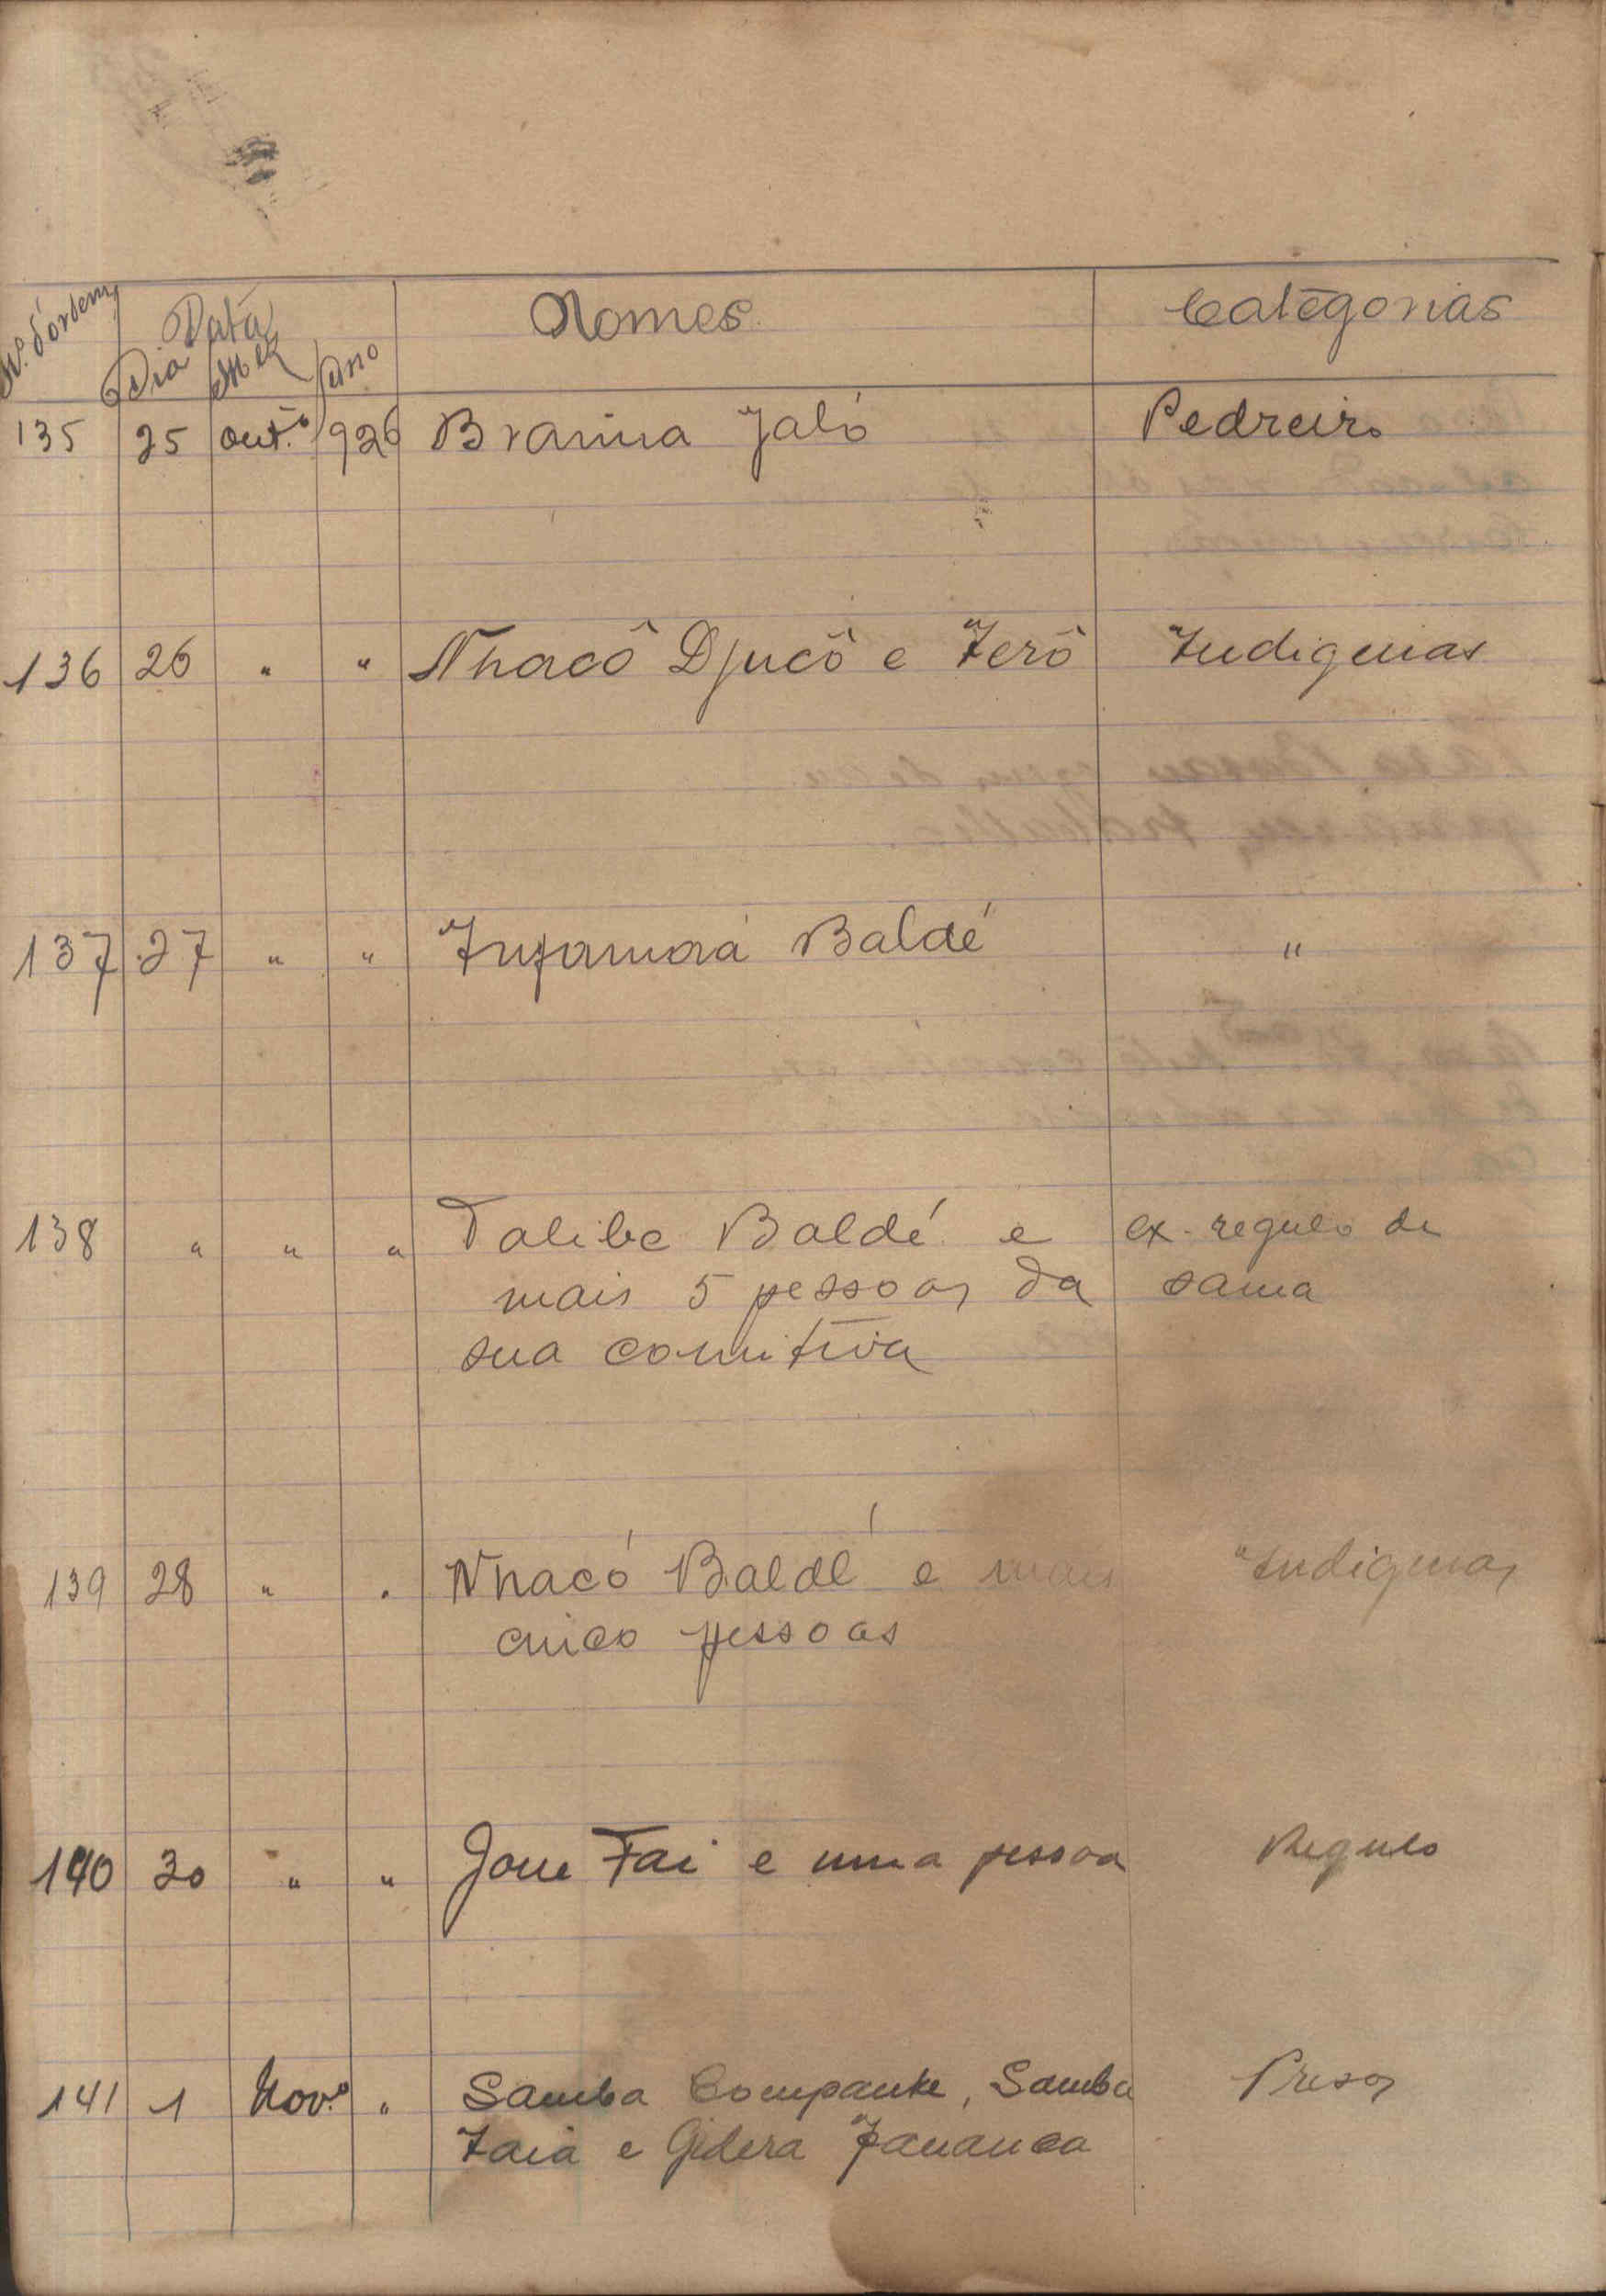 Nº d'ordem Data Nomes Categorias
Dia Mez Ano
135 25 Out.º 926 Braima Jaló Pedreiro
136 26 " " Nhacô Djucô e Terô Indiginas
137 27 " " Infamará Baldé "
138 " " " Talibe Baldé e ex-regulo de
mais 5 pessoas da sama
sua comitiva
139 28 " " Nhacó Baldé e mais Indiginas
cinco pessoas
140 30 " " Joue Fai e uma pessoa Regulo
141 1 Nov.º " Samba Companke, Samba Presos
e Gidera